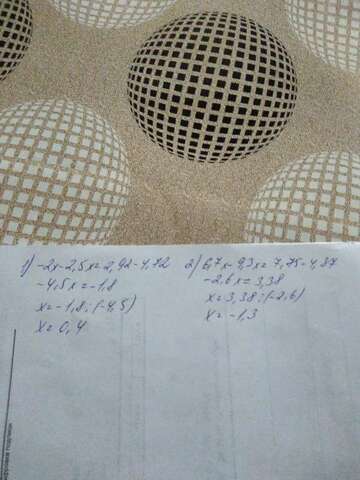 1) -2x-2,5x=2,92-4,72
-4,5x=-1,8
x=-1,8:(-4,5)
x=0,4
2) 6,7x-9,3x=7,75-4,37
-2,6x=3,38
x=3,38:(-2,6)
x=-1,3